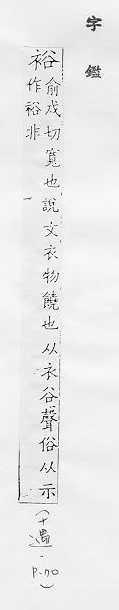 字鑑
裕
俞戍切寬也說文衣物饒也从衣谷聲俗从示
作裕非
(十遇·
P.70)